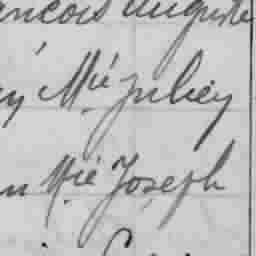 ancois Auguste
y Mié Juliey
n Mié Joseph